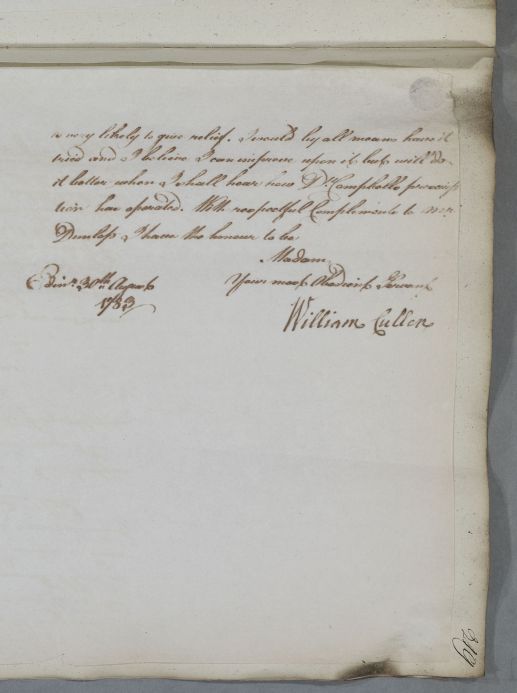 is very likely to give relief. I would by all means have it
tried and I believe I can improve upon it but will do
it better when I shall hear how Dr. Campbells prescrip
tion has operated. With respectful Compliments to Mr.
Dunlop, I have the honour to be
Madam
Your most Obedient Servant
Edinr. 30th. August
1783
William Cullen
219